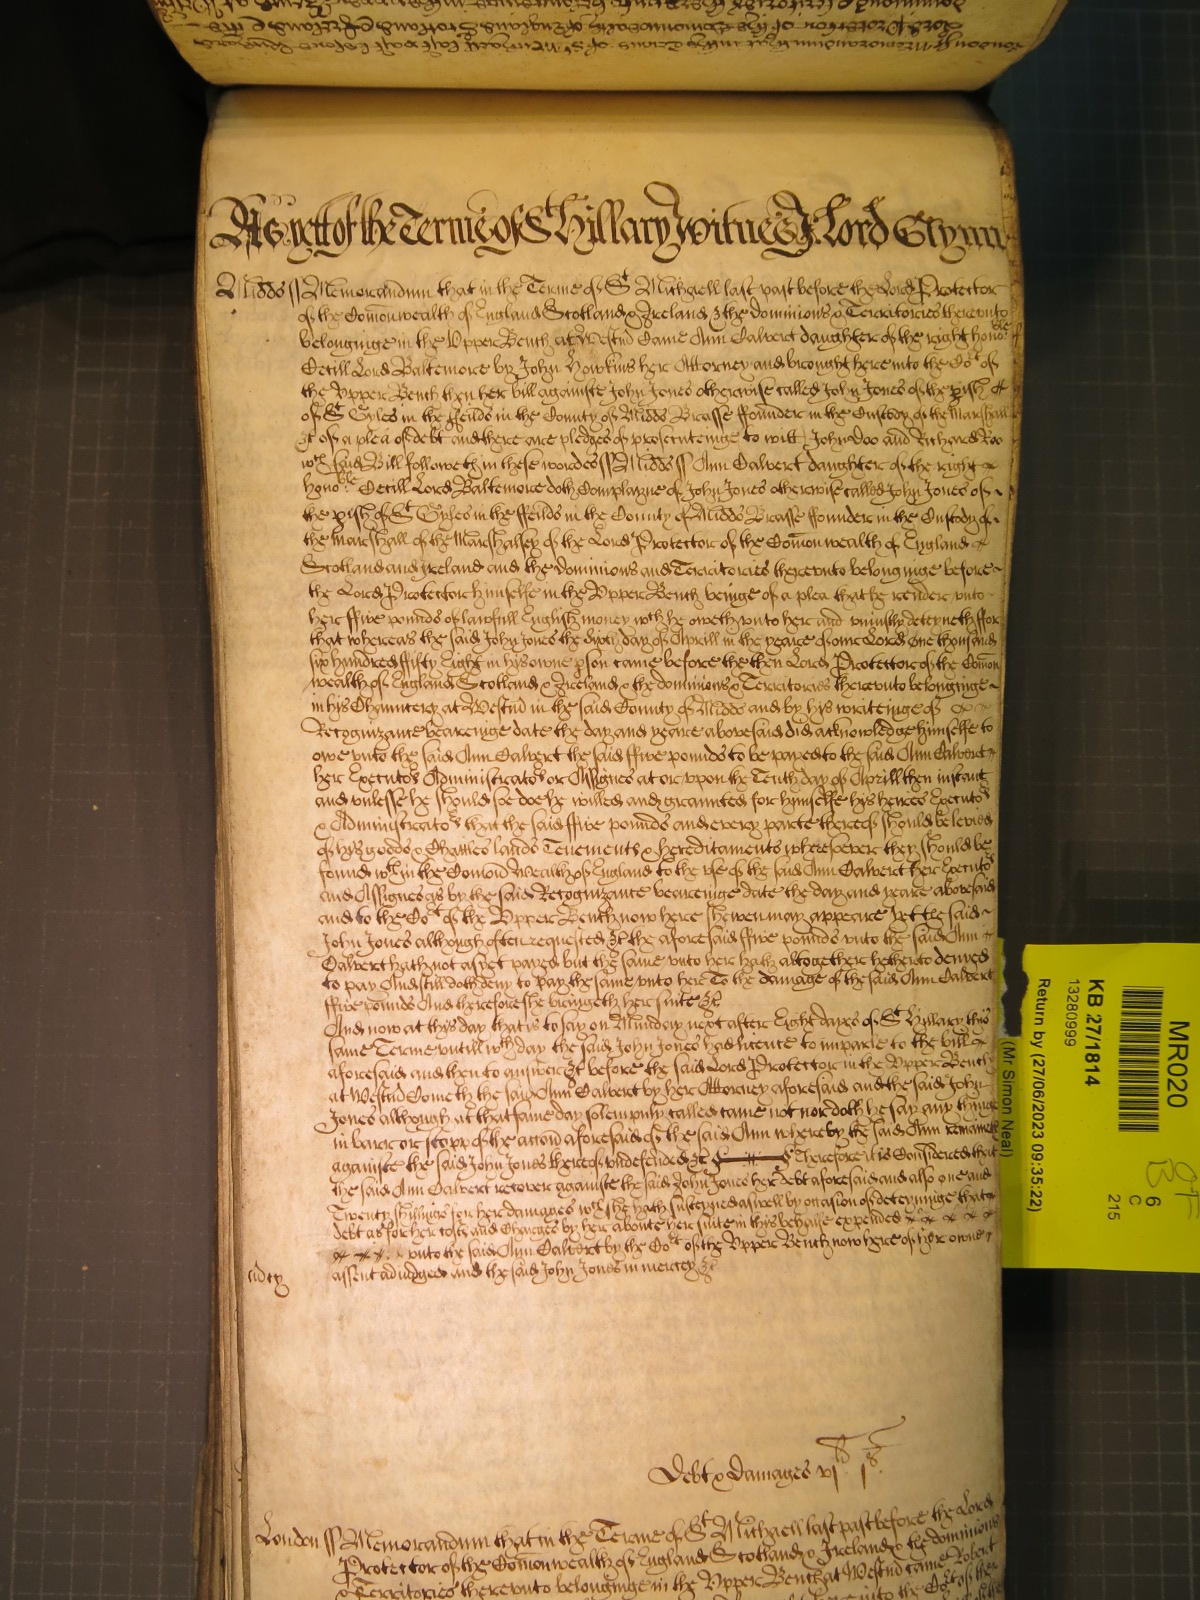 As yett of the Terme of St Hillary Witnes J: Lord Glynn
Midds ss Memorandum that in the Terme of St Michaell last past before the Lord Protector
of the Comonwealth of England Scotland & Ireland & the dominions & Territories therevnto
belonginge in the Vpper Bench at Westm̄ Came Ann Calvert daughter of the right honoble
Cecill Lord Baltemore by John Hawkins her Attorney and brought here into the Cort of
the Vpper Bench then her bill againste John Jones otherwise called John Jones of the pish
of St Gyles in the ffeilds in the County of Midds Brasse ffounder in the Custody of the Marshall
&c of a plea of debt and there are pledges of prosecuteinge to witt John Doo and Richard Roo
wch said Bill followeth in these wordes ss Midds ss Ann Calvert daughter of the right
honoble Cecill Lord Baltemore doth Complayne of John Jones otherwise called John Jones of
the pish of St Gyles in the ffeilds in the County of Midds Brasse ffounder in the Custody of
the Marshall of the Marshalsey of the Lord Protector of the Comonwealth of England
Scotland and Ireland and the dominions and Territories therevnto belonginge before
the Lord Protector himselfe in the Vpper Bench beinge of a plea that he render vnto
her ffive pounds of lawfull English money wch he oweth vnto her and vniustly deteyneth ffor
that whereas the said John Jones the day of Aprill in the yeare of our Lord one thousand
six hundred ffifty Eight in his owne pson came before the then Lord Protector of the Comon
wealth of England Scotland & Ireland & the dominions & Territories therevnto belonginge
in his Chauncery at Westm̄ in the said County of Midds and by his writeinge of
Recognizance beareinge date the day and yeare abovesaid did acknowledge himselfe to
owe vnto the said Ann Calvert the said ffive pounds to be payed to the said Ann Calvert
her Executors Administrators or Assignes at or vpon the Tenth day of Aprill then instant
and vnlesse he should soe doe he willed and graunted for himselfe his heires Executors
& Administrators that the said ffive pounds and every parte thereof should be levied
of his goods & Chattles lands Tenements & hereditaments wheresoever they should be
found wthin the Comon Wealth of England to the vse of the said Ann Calvert her Executors
and Assignes as by the said Recognizance beareinge date the day and yeare abovesaid
and to the Cort of the Vpper Bench now here shewen may appeare Yet the said
John Jones although often requested &c the aforesaid ffive pounds vnto the said Ann
Calvert hath not as yet payed but the same vnto her hath altogether hetherto denyed
to pay And still doth deny to pay the same vnto her To the damage of the said Ann Calvert
ffive pounds And therefore she bringeth her suite &c
And now at this day that is to say on Munday next after Eight dayes of St Hillary this
same Terme vntill wch day the said John Jones had licence to imparle to the bill
aforesaid and then to answer &c before the said Lord Protector in the Vpper Bench
at Westm̄ Cometh the said Ann Calvert by her Attorney aforesaid and the said John
Jones although at that same day solempnly called came not nor doth he say any thinge
in barr or stopp of the accōn aforesaid of the said Ann whereby the said Ann remaineth
againste the said John Jones thereof vndefended &c Therefore it is Considered that
the said Ann Calvert recover againste the said John Jones her debt aforesaid and also one and
Twenty shillings for her damages wch she hath susteyned aswell by occasion of deteyninge that
debt as for her costs and Charges by her about her suite in this behalfe expended
vnto the said Ann Calvert by the Cort of the Vpper Bench now here of her owne
assent adiudged and the said John Jones in mercy &c
Debt & damages vjl js
London ss Memorandum that in the Terme of St Michaell last past before the Lord
Protector of the Comonwealth of England Scotland & Ireland & the dominions
& Territories therevnto belonginge in the Vpper Bench at Westm̄ came Robert
MR020
KB 27/1814
13280999
Return by (27/06/2023 09:35:22)
(Mr Simon Neal)
6
C
215